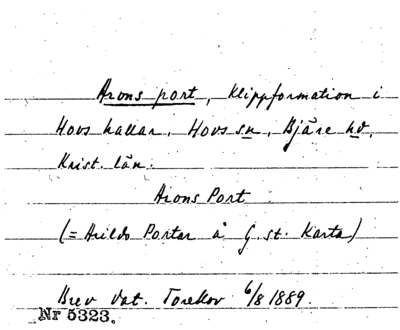 Arons port, klippformation i
Hovs hallar, Hovs sn, Bjäre hd,
Krist. län.
Arons Port
(= Arilds Portar å G. st. Karta)
Brev dat. Torekov 6/8 1889.
Nr 5323.